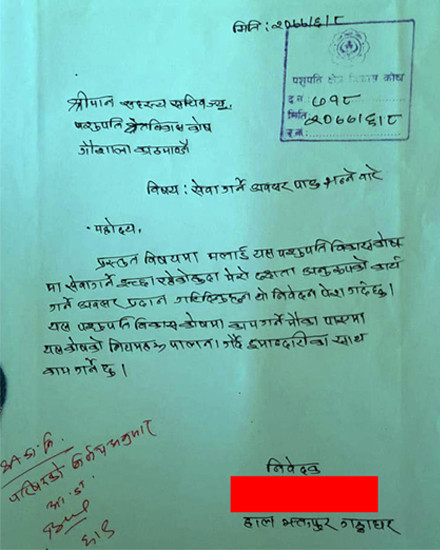 मिति: २०७७/६/८
पशुपति क्षेत्र विकास कोष
द.नं. ७१८
मिति २०७७/६/८
श्रीमान सदस्य सचिवज्यू,
पशुपति क्षेत्र विकास कोष
गौशाला काठमाडौं
विषय: सेवा गर्ने अवसर पाउँ भन्ने बारे
महोदय,
प्रस्तुत विषयमा मलाई यस पशुपति विकास कोष
मा सेवा गर्ने इच्छा रहेकोहुदा मेरो दक्षता अनुरूपको कार्य
गर्ने अवसर प्रदान गरिदिनुहुन यो निवेदन पेश गर्दछु।
यस पशुपति विकास कोषमा काम गर्ने मौका पाएमा
यस कोषको नियमहरू पालना गर्दै इमान्दारीका साथ
काम गर्नेछु।
निर्णय अनुसार
निवेदक
हाल भक्तपुर गठ्ठाघर